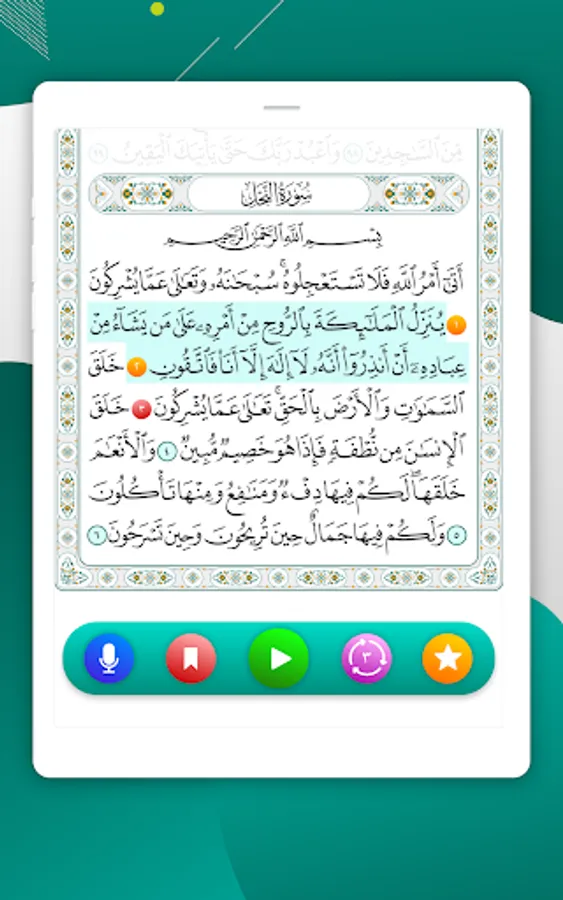 مِّنَ ٱلسَّٰجِدِينَ ٩٨ وَٱعْبُدْ رَبَّكَ حَتَّىٰ يَأْتِيَكَ ٱلْيَقِينُ ٩٩
سُورَةُ النَّحْلِ
بِسْمِ ٱللَّهِ ٱلرَّحْمَٰنِ ٱلرَّحِيمِ
أَتَىٰٓ أَمْرُ ٱللَّهِ فَلَا تَسْتَعْجِلُوهُ ۚ سُبْحَٰنَهُۥ وَتَعَٰلَىٰ عَمَّا يُشْرِكُونَ
١ يُنَزِّلُ ٱلْمَلَٰٓئِكَةَ بِٱلرُّوحِ مِنْ أَمْرِهِۦ عَلَىٰ مَن يَشَآءُ مِنْ
عِبَادِهِۦٓ أَنْ أَنذِرُوٓا۟ أَنَّهُۥ لَآ إِلَٰهَ إِلَّآ أَنَا۠ فَٱتَّقُونِ ٢ خَلَقَ
ٱلسَّمَٰوَٰتِ وَٱلْأَرْضَ بِٱلْحَقِّ ۚ تَعَٰلَىٰ عَمَّا يُشْرِكُونَ ٣ خَلَقَ
ٱلْإِنسَٰنَ مِن نُّطْفَةٍ فَإِذَا هُوَ خَصِيمٌ مُّبِينٌ ٤ وَٱلْأَنْعَٰمَ
خَلَقَهَا ۗ لَكُمْ فِيهَا دِفْءٌ وَمَنَٰفِعُ وَمِنْهَا تَأْكُلُونَ
٥ وَلَكُمْ فِيهَا جَمَالٌ حِينَ تُرِيحُونَ وَحِينَ تَسْرَحُونَ ٦
٣